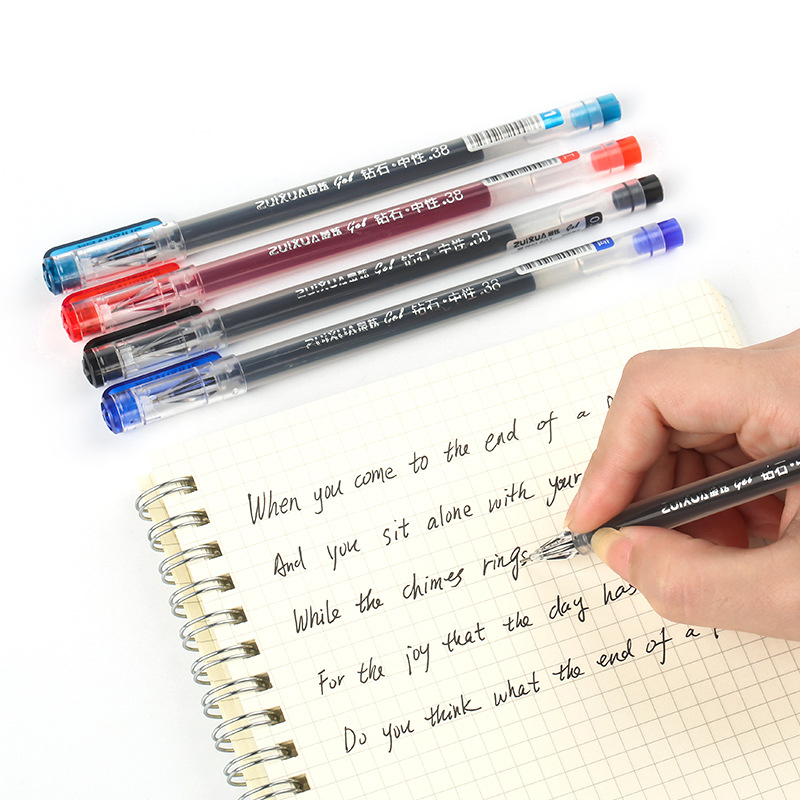 ZUIXUA Gel 钻石·中性.38
ZUIXUA Gel 钻石·中性.38
ZUIXUA Gel 钻石·中性.38
ZUIXUA
ZUIXUA Gel 钻石·中性.38
When you come to the end of a
And you sit alone with your
ZUIXUA Gel 钻石
While the chimes rings
For the joy that the day has
Do you think what the end of a